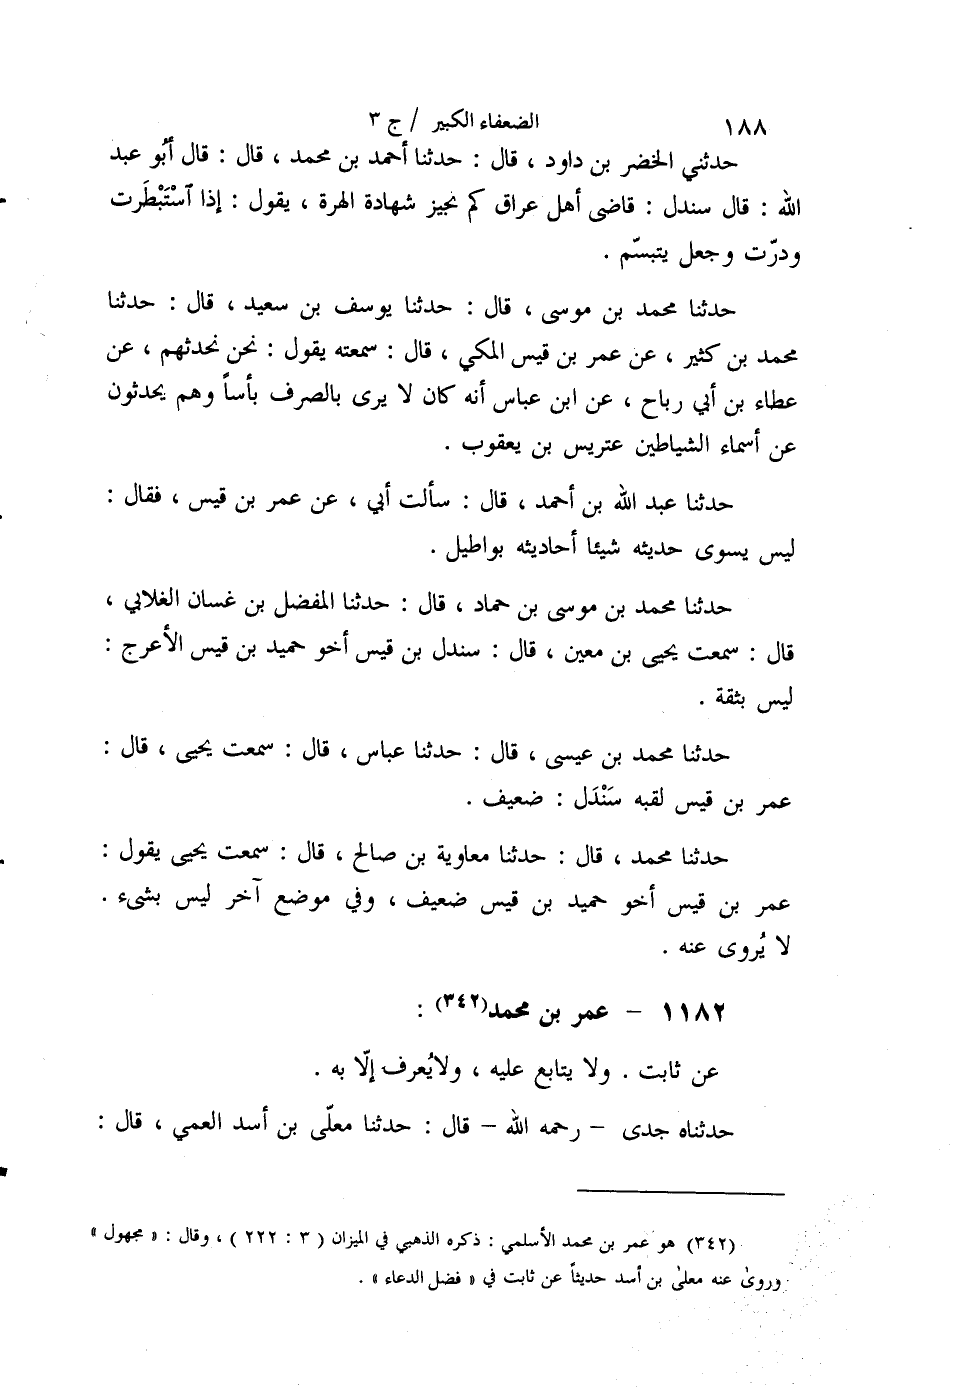 ١٨٨ الضعفاء الكبير / ج ٣
حدثني الخضر بن داود ، قال : حدثنا أحمد بن محمد ، قال : قال أبُو عبد
الله : قال سندل : قاضى أهل عراق كم نجيز شهادة الهرة ، يقول : إذا ٱسْتَبْطَرت
ودرّت وجعل يتبسّم .
حدثنا محمد بن موسى ، قال : حدثنا يوسف بن سعيد ، قال : حدثنا
محمد بن كثير ، عن عمر بن قيس المكي ، قال : سمعته يقول : نحن نحدثهم ، عن
عطاء بن أبي رباح ، عن ابن عباس أنه كان لا يرى بالصرف بأساً وهم يحدثون
عن أسماء الشياطين عتريس بن يعقوب .
حدثنا عبد الله بن أحمد ، قال : سألت أبي ، عن عمر بن قيس ، فقال :
ليس يسوى حديثه شيئا أحاديثه بواطيل .
حدثنا محمد بن موسى بن حماد ، قال : حدثنا المفضل بن غسان الغلابي ،
قال : سمعت يحيى بن معين ، قال : سندل بن قيس أخو حميد بن قيس الأعرج :
ليس بثقة .
حدثنا محمد بن عيسى ، قال : حدثنا عباس ، قال : سمعت يحيى ، قال :
عمر بن قيس لقبه سَنْدَل : ضعيف .
حدثنا محمد ، قال : حدثنا معاوية بن صالح ، قال : سمعت يحيى يقول :
عمر بن قيس أخو حميد بن قيس ضعيف ، وفي موضع آخر ليس بشىء .
لا يُروى عنه .
١١٨٢ – عمر بن محمد(٣٤٢) :
عن ثابت . ولا يتابع عليه ، ولايُعرف إلّا به .
حدثناه جدى – رحمه الله – قال : حدثنا معلّى بن أسد العمي ، قال :
(٣٤٢) هو عمر بن محمد الأسلمي : ذكره الذهبي في الميزان ( ٣ : ٢٢٢ ) ، وقال : « مجهول »
وروىٰ عنه معلىٰ بن أسد حديثاً عن ثابت في « فضل الدعاء » .